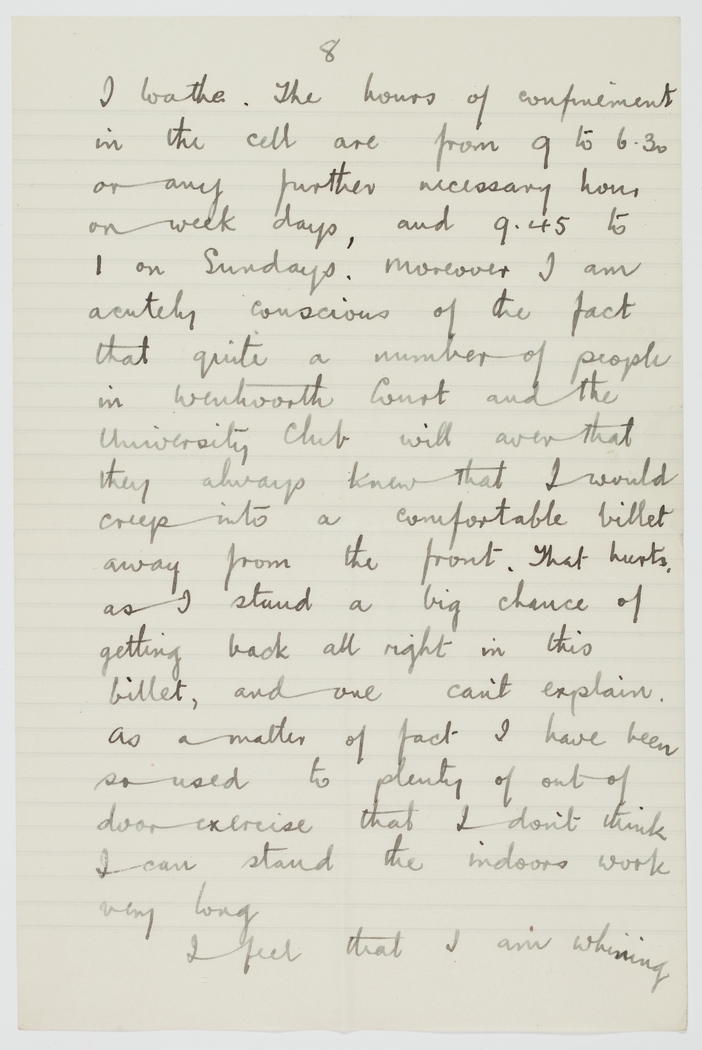 8
I loathe. The hours of confinement
in the cell are from 9 to 6.30
or any further necessary hour
on week days, and 9.45 to
1 on Sundays. Moreover I am
acutely conscious of the fact
that quite a number of people
in Wentworth Court and the
University Club will aver that
they always knew that I would
creep into a comfortable billet
away from the front. That hurts,
as I stand a big chance of
getting back all right in this
billet, and one can't explain.
As a matter of fact I have been
so used to plenty of out of
door exercise that I don't think
I can stand the indoors work
very long
I feel that I am whining